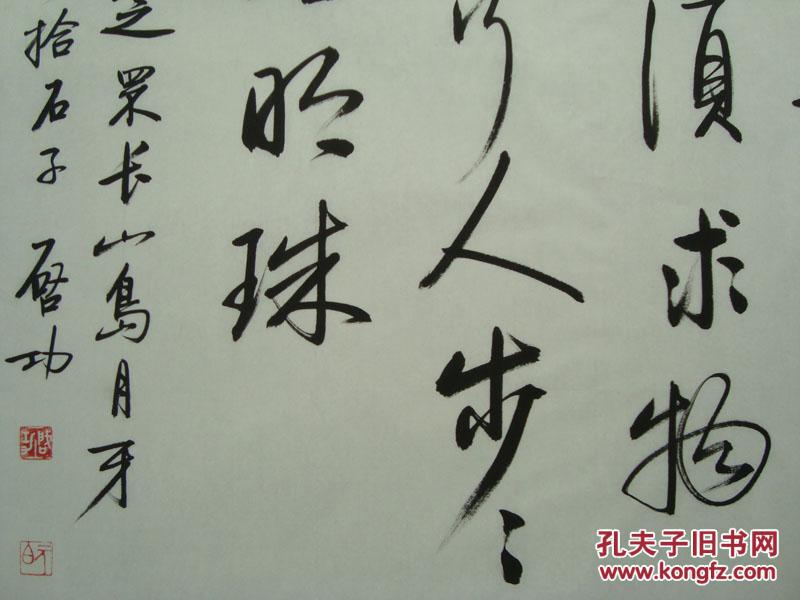 須求物
行人步〻
明珠
之罘长山島月牙
拾石子 啓功
孔夫子旧书网
www.kongfz.com